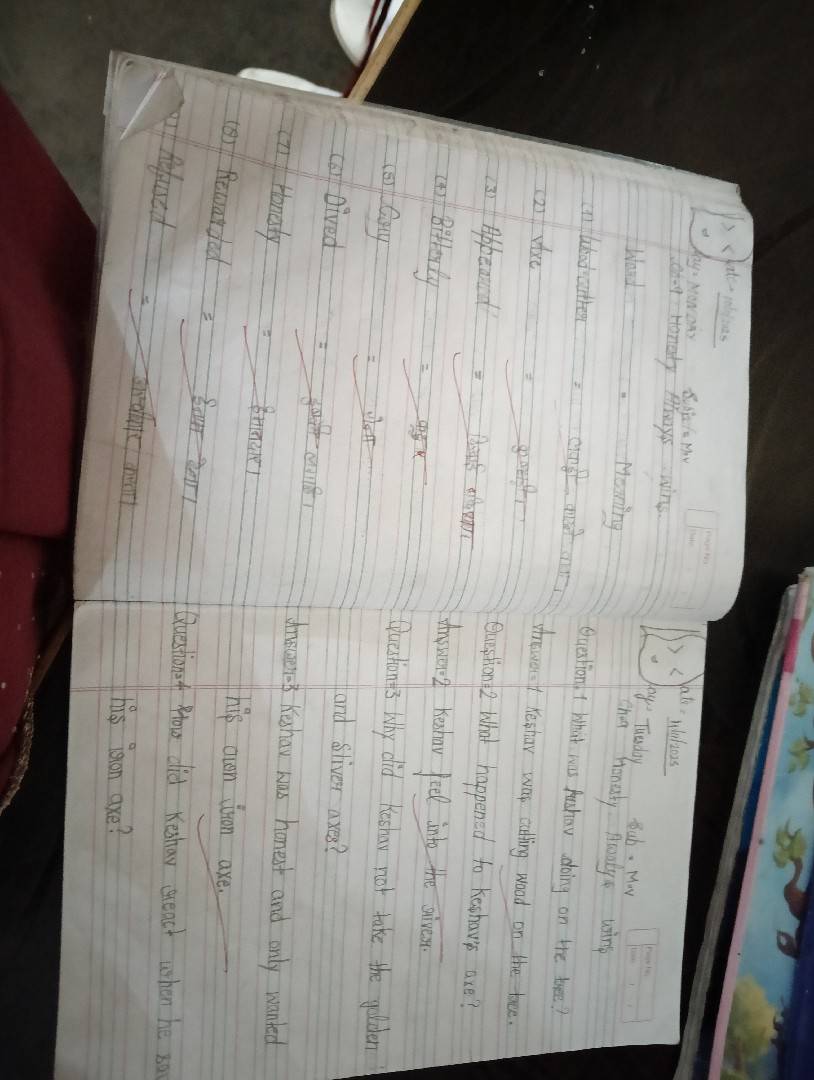 Day = MONDAY Subject = Mv
Ch-9 Honesty Always wins.
Word = Meaning
(1) Woodcutter =
(2) Axe = कुल्हाड़ी।
(3) Appeared =
(4) Bitterly =
(5) Cry = रोना
(6) Dived = डुबकी लगाई।
(7) Honesty = ईमानदारी।
(8) Rewarded = ईनाम देना।
Refused =
Page No.
Date
Date = 11/11/2025
Day = Tuesday Sub = Mv
Ch-9 honesty Awalys wins
Question=1 What was Keshav doing on the tree?
Answer=1 Keshav was cutting wood on the tree.
Question=2 What happened to Keshav's axe?
Answer=2 Keshav feel into the river.
Question=3 Why did Keshav not take the golden
and sliver axes?
Answer=3 Keshav was honest and only wanted
his own iron axe.
Question=4 How did Keshav react when he
his iron axe?
Page No.
Date